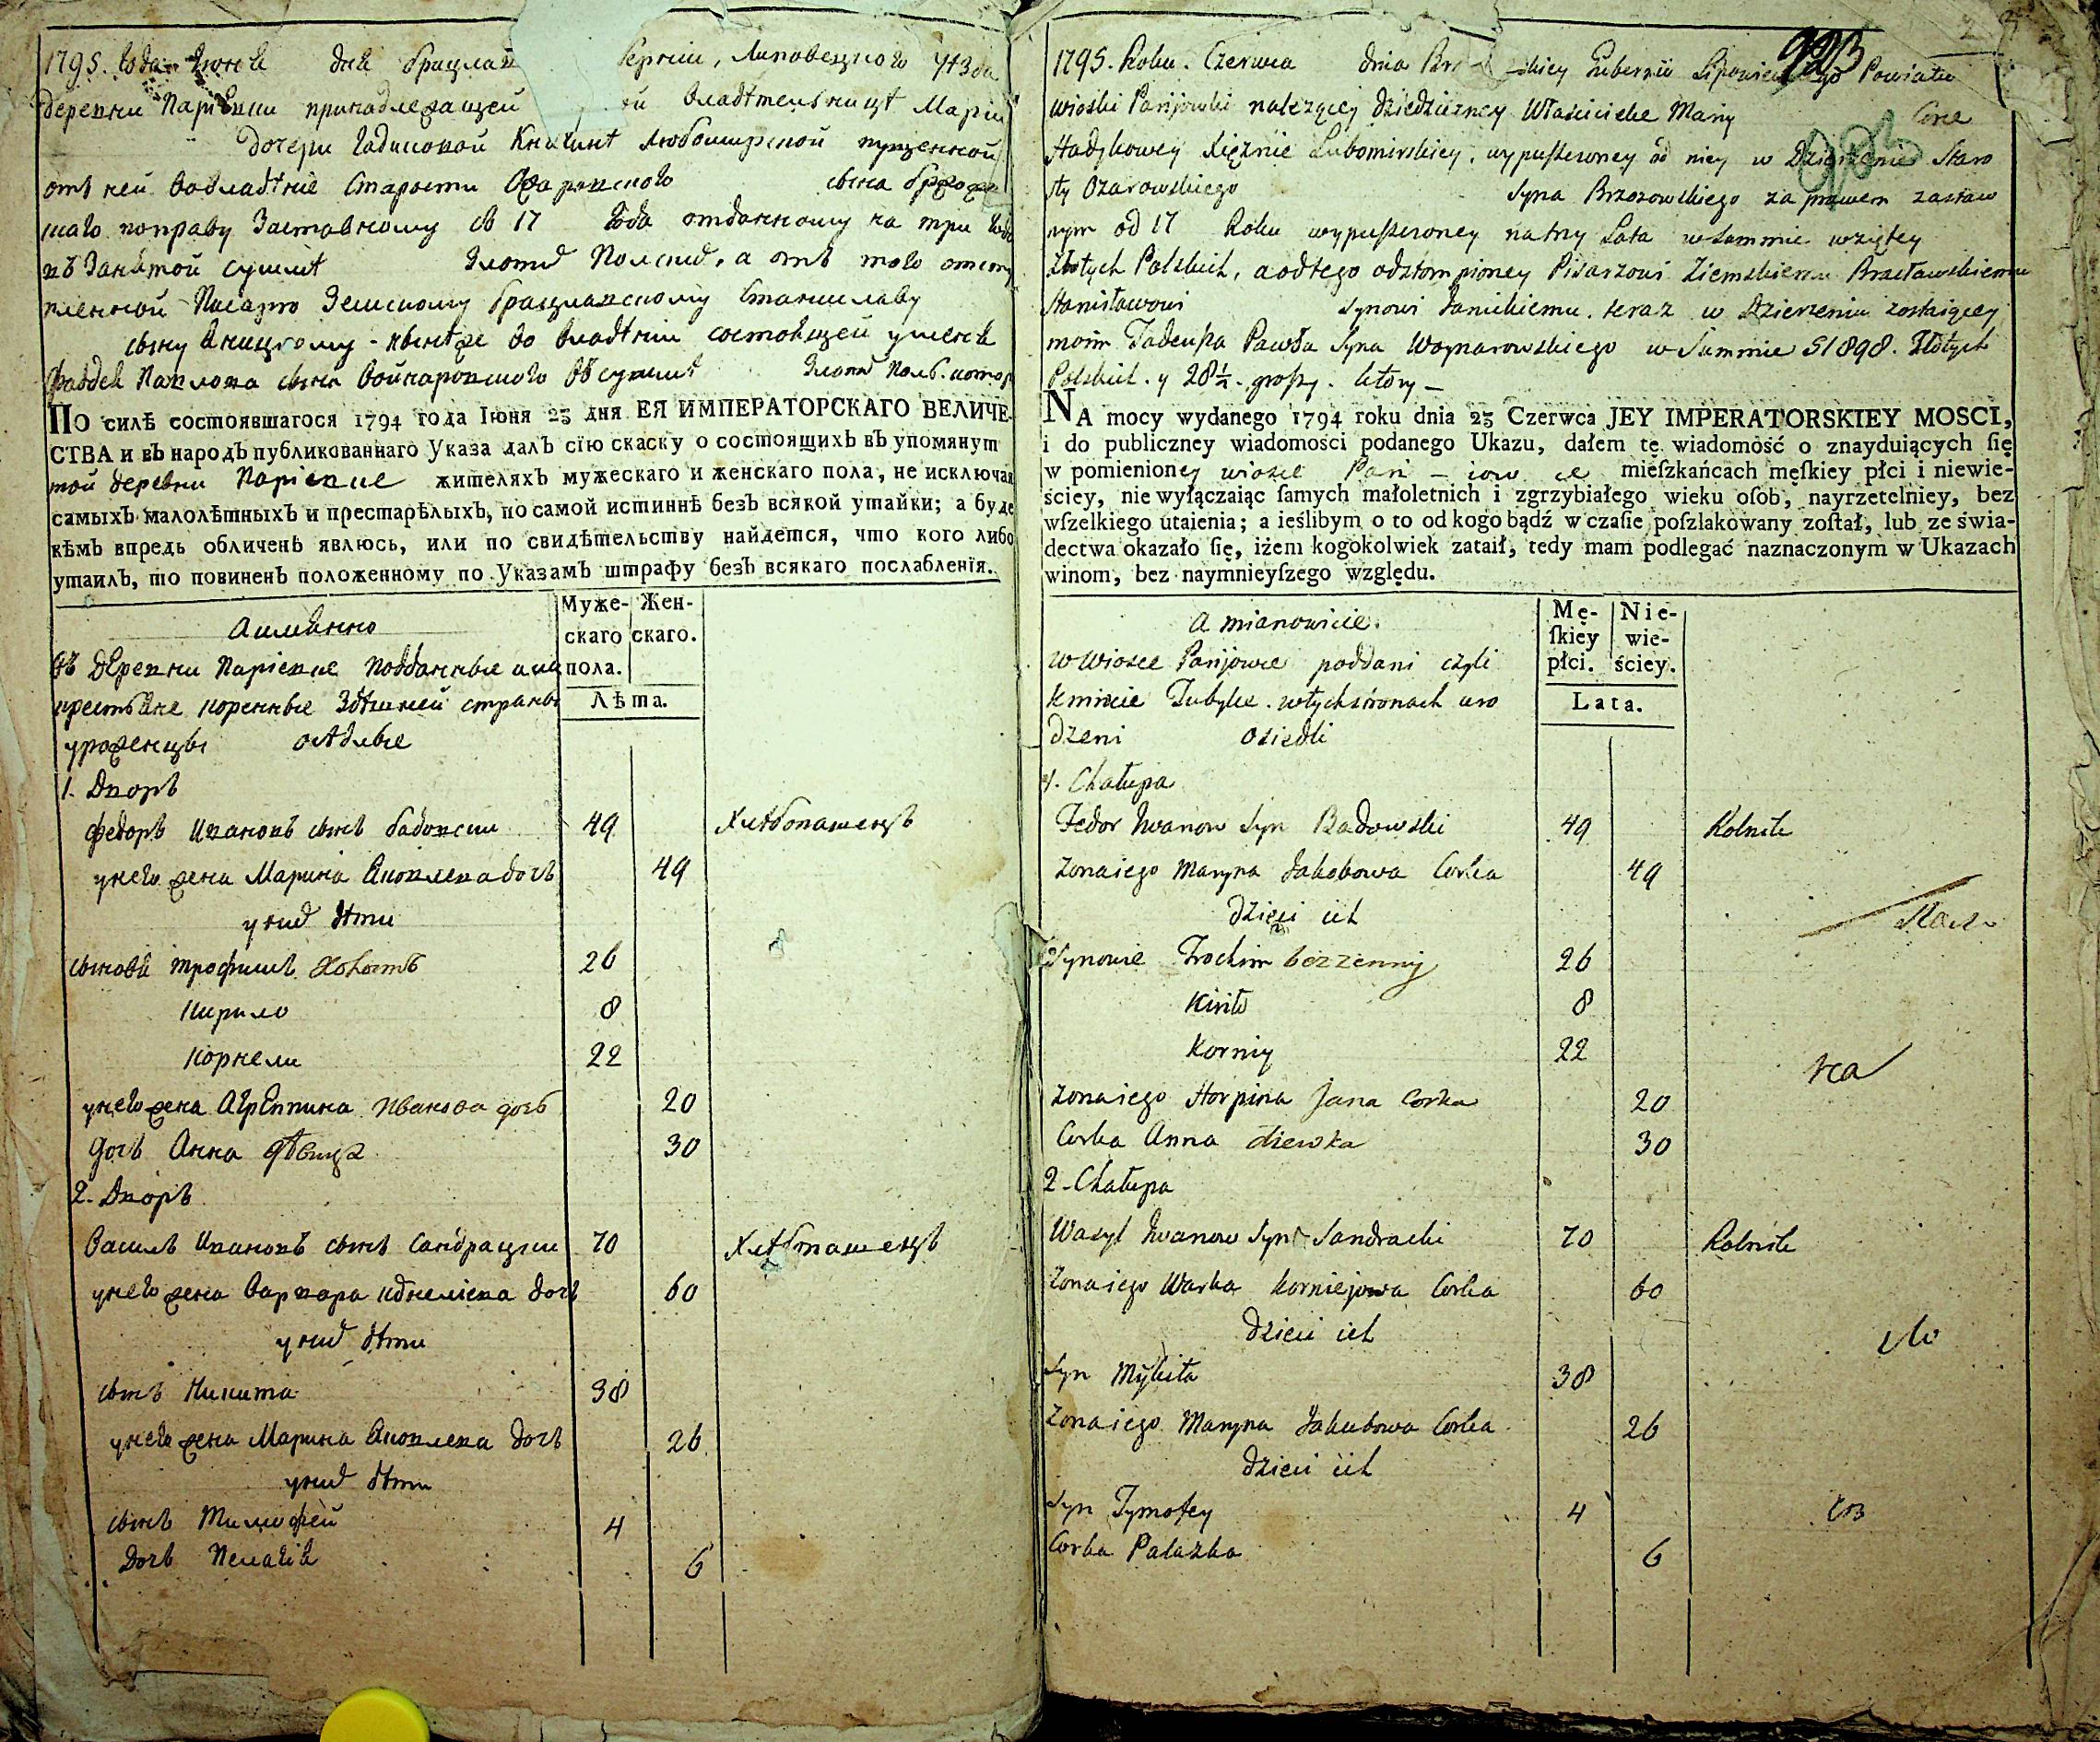 1795. года Июня дня Брацлав берніи, Липовецкого уѣзда
деревни Паріевки принадлежащей ой владѣтельницѣ Маріи
дочери Гадиковой Княгинѣ Любомирской пущенной
отъ ней во владѣніе Старости Ожаровского сына бржозов
скаго по праву Заставному съ 17 года отданному на три года
въ Занятой суммѣ Злотыхъ Полскихъ, а отъ того отсту
пленной Писарю Земскому Брацлавскому Станиславу
сыну Яницкому - нынѣ же во владѣніи состоящей у меня
Фаддея Павлова сына Войнаровского въ суммѣ Злотыхъ Поль. котор
ПО силѣ состоявшагося 1794 года Іюня 23 дня ЕЯ ИМПЕРАТОРСКАГО ВЕЛИЧЕ-
СТВА и въ народъ публикованнаго Указа далъ сїю скаску о состоящихъ въ упомянут
той деревни Паріевке жителяхъ мужескаго и женскаго пола, не исключая
самыхъ малолѣтныхъ и престарѣлыхъ, по самой истиннѣ безъ всякой утайки; а буде
кѣмъ впредь обличенъ явлюсь, или по свидѣтельству найдется, что кого либо
утаилъ, то повиненъ положенному по Указамъ штрафу безъ всякаго послабленїя.
Муже- Жен-
скаго скаго.
пола.
Лѣта.
А имянно
Въ деревни Паріевке подданные или
крестьяне коренные здѣшней страны
уроженцы осѣдлые
1. Дворъ
Федоръ Ивановъ сынъ Бадовски 49 Хлѣбопашецъ
у него жена Марина Яковлева дочь 49
у нихъ дѣти
сыновя Трофимъ холостъ 26
Кирило 8
Корнели 22
у него жена Агреппина Иванова дочь 20
дочь Анна дѣвица 30
2. Дворъ
Василь Ивановъ сынъ Сандрацки 70 Хлѣбпашецъ
у него жена Варвара Корнеліева дочь 60
у нихъ дѣти
сынъ Никита 38
у него жена Марина Яковлева дочь 26
у нихъ дѣти
сынъ Тимофей 4
Дочь Пелагія 6
923
1795. Roku. Czerwca dnia Br skiey Gubernii Lipowieckiego Powiatu
wioski Parijowki należącej dziedziczney Właścicielce Maryi Corce
Hadykowey Xiężnie Lubomirskiey, wypuszczoney od niey w Dzierżenie Staro
sty Ożarowskiego Syna Brzozowskiego za prawem zastaw
nym od 17 Roku wypuszczoney na trzy Lata w Summie wziętey
Złotych Polskich, a od tego odstompioney Pisarzowi Ziemskiemu Bracławskiemu
Stanisławowi Synowi Janickiemu. teraz w Dzierzeniu zostaiącey
moim Tadeusza Pawła Syna Woynarowskiego w Summie 51898. Złotych
Polskich. y 28½. groszy. który —
NA mocy wydanego 1794 roku dnia 23 Czerwca JEY IMPERATORSKIEY MOSCI,
i do publiczney wiadomości podanego Ukazu, dałem tę wiadomość o znayduiących ſię
w pomienioney wiosce Pari - iow ce mieſzkańcach męſkiey płci i niewie-
ściey, nie wyłączaiąc ſamych małoletnich i zgrzybiałego wieku oſob, nayrzetelniey, bez
wſzelkiego utaienia; a ieślibym o to od kogo bądź w czaſie poſzlakowany zoſtał, lub ze świa-
dectwa okazało ſię, iżem kogokolwiek zataił, tedy mam podlegać naznaczonym w Ukazach
winom, bez naymnieyſzego względu.
Mę- Nie-
ſkiey wie-
płci. ściey.
Lata.
A mianowicie.
w wiosce Parijowce poddani czyli
kmiecie Tubylce. w tych stronach uro
dzeni osiedli
1. Chałupa
Fedor Iwanow Syn Badowski 49 Rolnik
Zona iego Maryna Jakobowa Corka 49
dzieci ich
Synowie Trochim bezzenny 26
Kiriło 8
Korniy 22
Zona iego Horpina Jana Corka 20
Corka Anna dziewka 30
2. Chałupa
Wasyl Iwanow Syn Sandracki 70 Rolnik
Zona iego Warka Korniejowa Corka 60
dzieci ich
Syn Mykita 38
Zona iego Maryna Jakubowa Corka 26
dzieci ich
Syn Tymofey 4
Corka Palazka 6